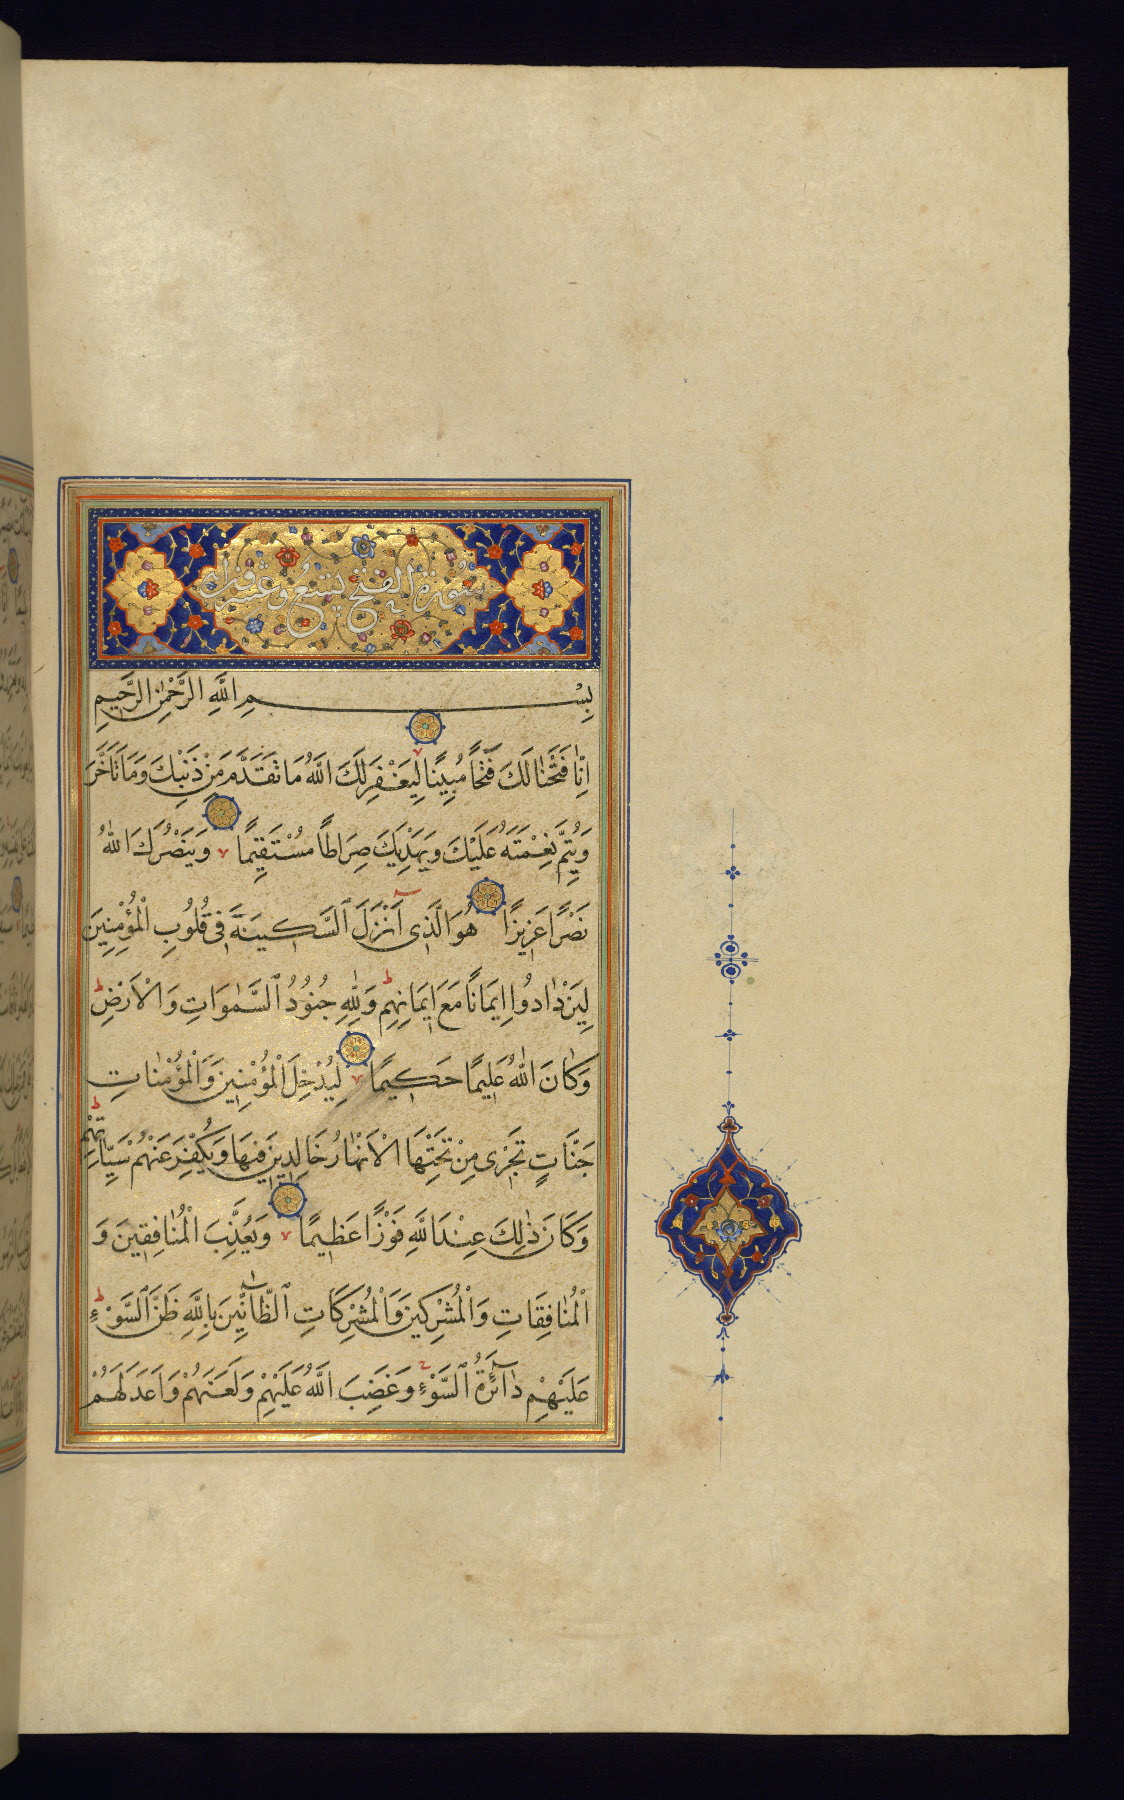 سورة الفتح تسع وعشرون آية
بِسْمِ اللَّهِ الرَّحْمٰنِ الرَّحِيمِ
اِنَّا فَتَحْنَا لَكَ فَتْحًا مُبِينًا لِيَغْفِرَ لَكَ اللَّهُ مَا تَقَدَّمَ مِنْ ذَنْبِكَ وَمَا تَاَخَّرَ
وَيُتِمَّ نِعْمَتَهُ عَلَيْكَ وَيَهْدِيَكَ صِرَاطًا مُسْتَقِيمًا وَيَنْصُرَكَ اللّٰهُ
نَصْرًا عَزِيزًا هُوَ الَّذِى اَنْزَلَ السَّكِينَةَ فِى قُلُوبِ الْمُؤْمِنِينَ
لِيَزْدَادُوا اِيمَانًا مَعَ اِيمَانِهِمْ وَلِلّٰهِ جُنُودُ السَّمٰوَاتِ وَالْاَرْضِ
وَكَانَ اللّٰهُ عَلِيمًا حَكِيمًا لِيُدْخِلَ الْمُؤْمِنِينَ وَالْمُؤْمِنَاتِ
جَنَّاتٍ تَجْرِى مِنْ تَحْتِهَا الْاَنْهَارُ خَالِدِينَ فِيهَا وَيُكَفِّرَ عَنْهُمْ سَيِّاٰتِهِمْ
وَكَانَ ذٰلِكَ عِنْدَ اللَّهِ فَوْزًا عَظِيمًا وَيُعَذِّبَ الْمُنَافِقِينَ وَ
الْمُنَافِقَاتِ وَالْمُشْرِكِينَ وَالْمُشْرِكَاتِ الظَّانِّينَ بِاللَّهِ ظَنَّ السَّوْءِ
عَلَيْهِمْ دَآئِرَةُ السَّوْءِ وَغَضِبَ اللَّهُ عَلَيْهِمْ وَلَعَنَهُمْ وَاَعَدَّ لَهُمْ